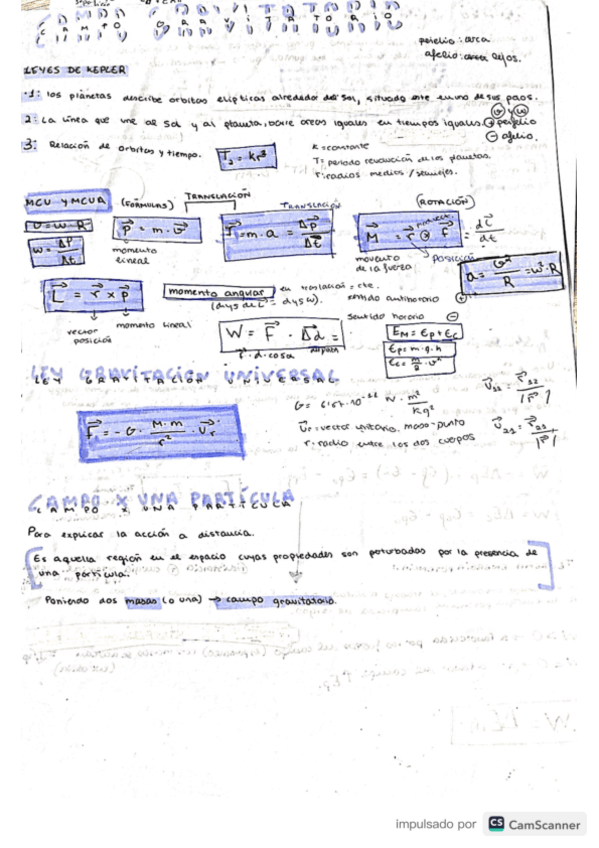 CAMPO GRAVITATORIO
perielio: cerca
afelio: lejos.
LEYES DE KEPLER
1: los planetas describe orbitas elipticas alrededor del Sol, situado este en uno de sus
2: La línea que une al Sol y al planeta, barre areas iguales en tiempos iguales. ⊕ perielio
⊖ afelio.
3: Relación de orbitas y tiempo. T₂ = kr³
K = constante
T: periodo revolución de los planetas.
r: radios medios / semiejes.
MCU Y MCUA (FÓRMULAS) TRANSLACIÓN TRANSLACIÓN (ROTACIÓN)
v = w · R
w = Δφ/Δt
p = m · v
momento lineal
= m · a = Δp/Δt
M = r ⊗ f = dL/dt
momento de la fuerza
posición
a = v²/R = w² · R
L = r × p
vector posición
momento lineal
momento angular en traslación = cte.
sentido antihorario ⊕
sentido horario ⊖
W = F · Δd =
f · d · cosα
EM = Ep + Ec
Ep = m · g · h
Ec = m/2 · v²
LEY GRAVITACIÓN UNIVERSAL
F = - G · M·m/r² · Ur
G = 6'67·10⁻¹¹ N · m²/kg²
Ur = vector unitario. masa-punto
r = radio entre los dos cuerpos
CAMPO X UNA PARTÍCULA
Para explicar la acción a distancia.
Es aquella región en el espacio cuyas propiedades son perturbadas por la presencia de
una partícula.
Poniendo dos masas (o una) → campo gravitatorio.
impulsado por CS CamScanner